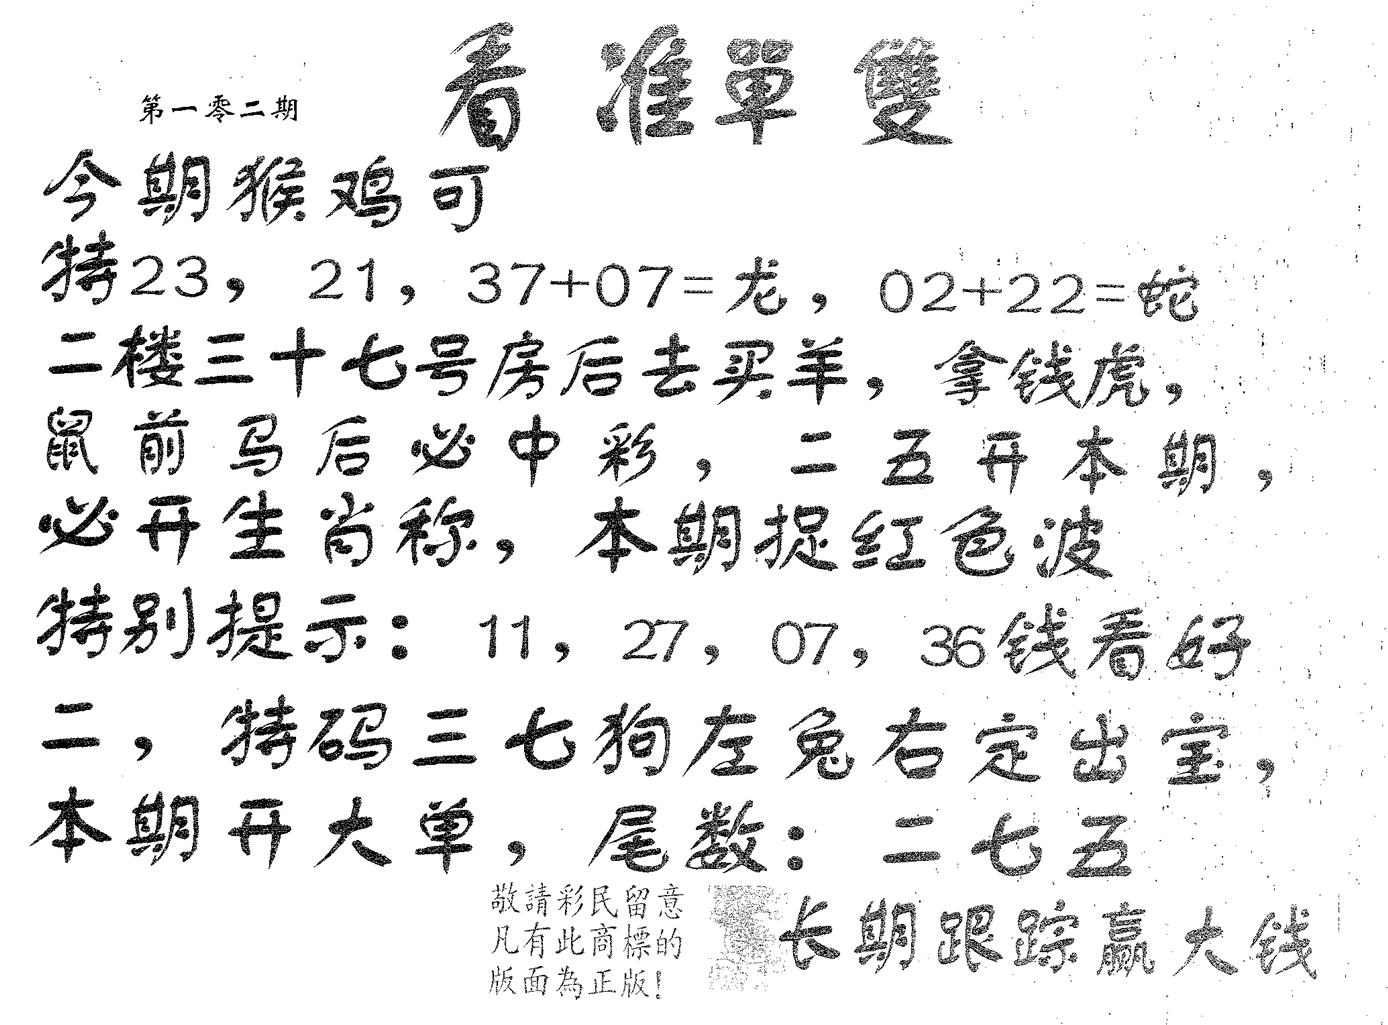 看准單雙
第一零二期
今期猴鸡可
特23，21，37+07=龙，02+22=蛇
二楼三十七号房后去买羊，拿钱虎，
鼠前马后必中彩，二五开本期，
必开生肖称，本期捉红色波
特别提示：11，27，07，36钱看好
二，特码三七狗左兔右定出宝，
本期开大单，尾数：二七五
敬請彩民留意
凡有此商標的
版面為正版！
长期跟踪赢大钱